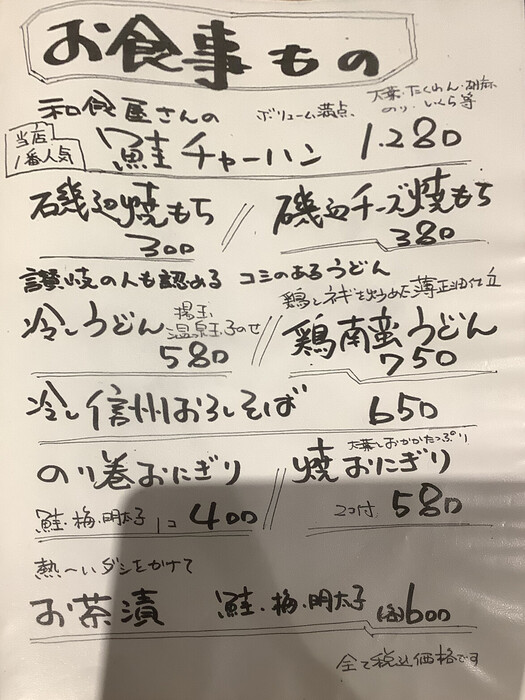 お食事もの
和食屋さんの ボリューム満点、 大葉・たくわん・胡麻
のり・いくら等
当店
1番人気
鮭チャーハン 1.280
磯辺焼もち 300
磯辺チーズ焼もち 380
讃岐の人も認める コシのあるうどん
鶏とネギを炒めた薄正油仕立
冷しうどん 揚玉、
温泉玉子のせ
580
鶏南蛮うどん
750
冷し信州おろしそば 650
のり巻おにぎり
鮭・梅・明太子 1コ 400
大葉とおかかたっぷり
焼おにぎり
2コ付 580
熱〜いダシをかけて
お茶漬 鮭・梅・明太子 600
全て税込価格です